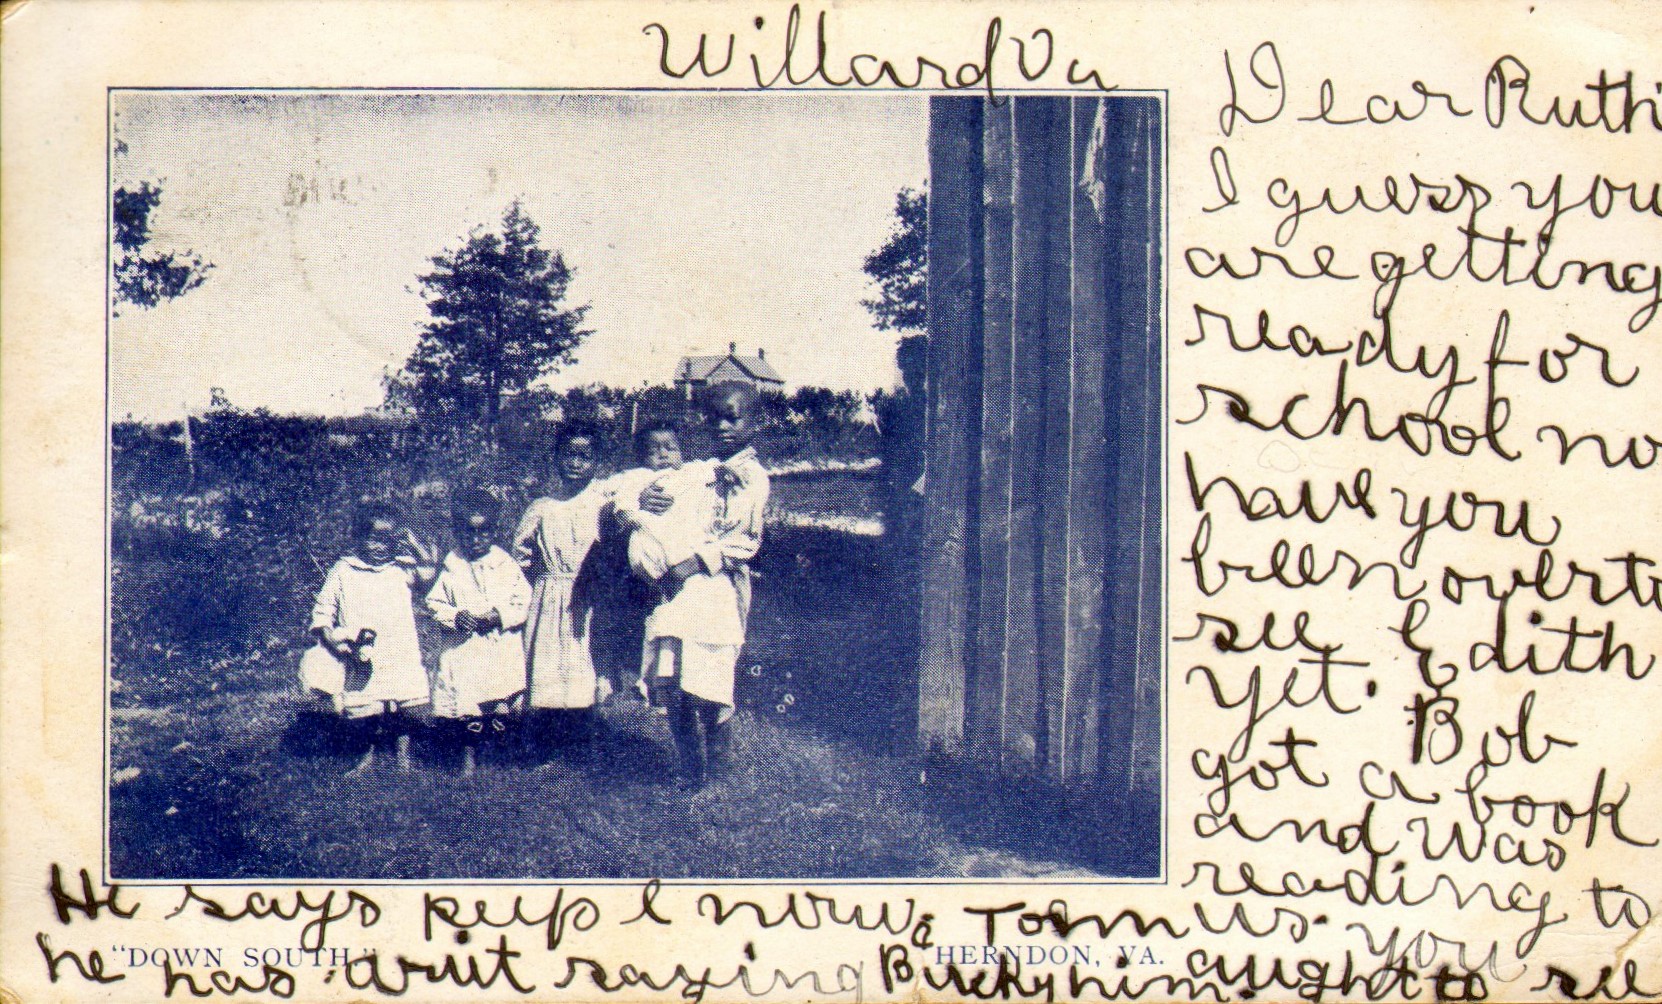 Willard Va
Dear Ruth
I guess you
are getting
ready for
school no
have you
been over to
see Edith
yet. Bob
got a book
and was
reading to
us. you
aught to see
He says
he has
saying
Bucky him.
"DOWN SOUTH."
HERNDON, VA.